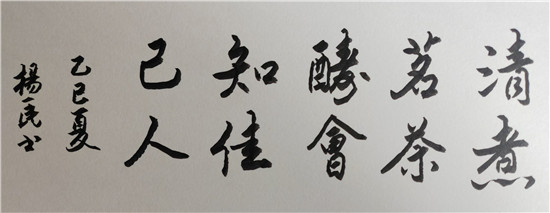 清茗醻知己
煮茶會佳人
乙巳夏
楊民书